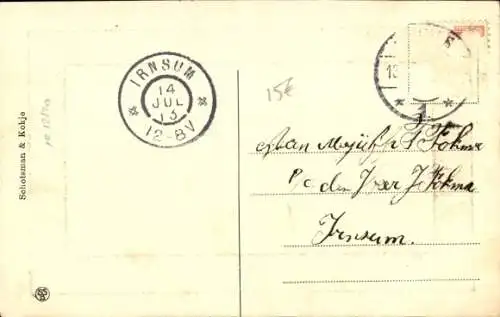 IRNSUM
14
JUL
13
12-8V
15€
1
Schotsman & Kokje
Aan Mejufr S Fokma
den Heer J Fokma
Irnsum.